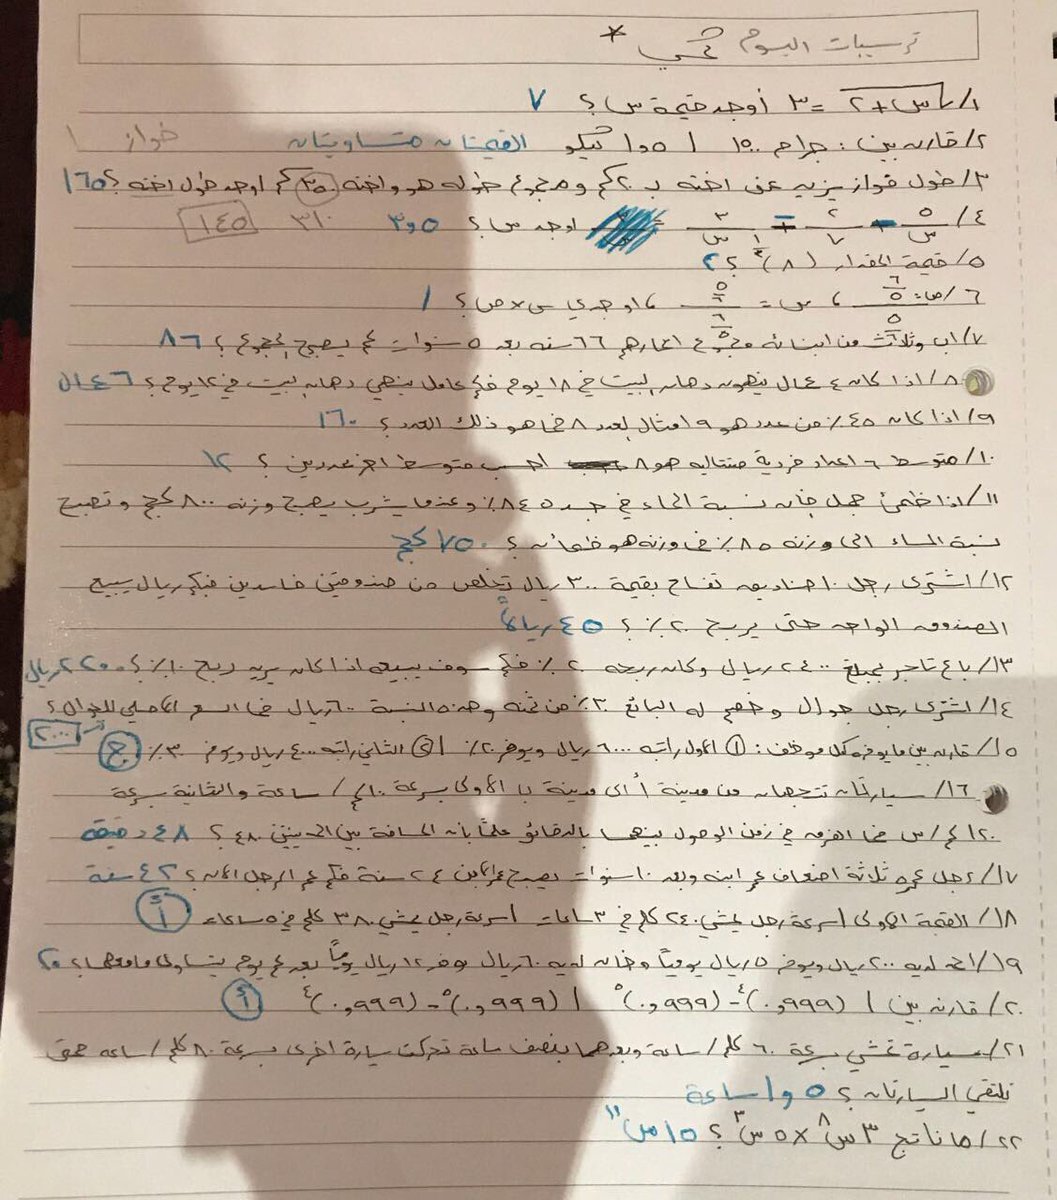 تسريبات اليوم كمي *
١/ √س+٢ = ٣ أوجد قيمة س؟ ٧
٢/ قارن بين: جرام ١٥٠٠ | ١,٥ كيلو القيمتان متساويتان فواز ١
٣/ طول فواز يزيد عن اخته بـ ٢٠كم ومجموع طوله هو واخته ٣١٠كم اوجد طول اخته؟ ١٦٥
٤/ ٥/س - ٢/٧ = ٣/س اوجد س؟ ٣,٥ ٣١٠ ١٤٥
٥/ قيمة المقدار (٨)^١/٣ ؟ ٢
٦/ ص= ٦/٥ ، س = ٥/٦ ، اوجدي س×ص؟ ١
٧/ اب وثلاث من ابنائه مجموع اعمارهم ٦٦ سنه بعد ٥ سنوات كم يصبح المجموع؟ ٨٦
٨/ اذا كان ٤ عمال ينهون دهان البيت في ١٨ يوم فكم عامل ينهي دهان البيت في ١٢ يوم؟ ٦ عمال
٩/ اذا كان ٤٥٪ من عدد هو ٩ امثال العدد ٨ فما هو ذلك العدد؟ ١٦٠
١٠/ متوسط ٦ اعداد فردية متتاليه هو ٨ احسب متوسط اخر عددين؟ ١٢
١١/ اذا ظمئ جمل فان نسبة الماء في جسده ٨٤٪ وعندما يشرب يصبح وزنه ٨٠٠ كجم وتصبح
نسبة الماء الى وزنه ٨٥٪ فما وزنه هو ظمأن؟ ٧٥٠ كجم
١٢/ اشترى رجل ١٠ صناديق تفاح بقيمة ٣٠٠ ريال تخلص من صندوقين فاسدين فبكم ريال يبيع
الصندوق الواحد حتى يربح ٢٠٪؟ ٤٥ ريالاً
١٣/ باع تاجر بمبلغ ٢٤٠٠ ريال وكان ربحه ٢٠٪ فبكم سوف يبيعه اذا كان يريد ربح ١٠٪؟ ٢٢٠٠ ريال
١٤/ اشترى رجل جوال وخصم له البائع ٣٠٪ من ثمنه وهذه النسبة ٦٠٠ ريال فما السعر الاصلي للجوال؟
٢٠٠٠
١٥/ قارن بين ما يوفره كل موظف: ① الاول راتبه ٦٠٠٠ ريال ويوفر ٢٠٪ | ② الثاني راتبه ٤٠٠٠ ريال ويوفر ٣٠٪ ج
١٦/ سيارتان تتجهان من مدينة أ الى مدينة ب الأولى بسرعة ١٠٠كم/ساعة والثانية بسرعة
١٢٠كم/س فما الفرق في زمن الوصول بينهما بالدقائق علماً بأن المسافة بين المدينتين ٤٨٠؟ ٤٨ دقيقة
١٧/ رجل عمره ثلاثة اضعاف عمر ابنه وبعد ١٠ سنوات يصبح عمر الابن ٢٤ سنة فكم عمر الرجل الان؟ ٤٢ سنة
١٨/ القيمة الاولى سرعة رجل يمشي ٢٤٠ كلم في ٣ ساعات | سرعة رجل يمشي ٣٨٠ كلم في ٥ ساعات أ
١٩/ احمد لديه ٢٠٠ ريال ويوفر ٥ ريال يومياً وخالد لديه ٦٠ ريال يوفر ١٢ ريال يومياً بعد كم يوم يتساوى ما معهما؟ ٢٠
٢٠/ قارن بين | (٠,٩٩٩)^٤ - (٠,٩٩٩)^٥ | (٠,٩٩٩)^٥ - (٠,٩٩٩)^٤ أ
٢١/ سيارة تمشي بسرعة ٦٠ كلم/ساعة وبعدهما بنصف ساعة تحركت سيارة اخرى بسرعة ٨٠ كلم/ساعه متى
تلتقي السيارتان؟ ١,٥ ساعة
٢٢/ ما ناتج ٣س^٨ × ٥س^٣ ؟ ١٥س^١١